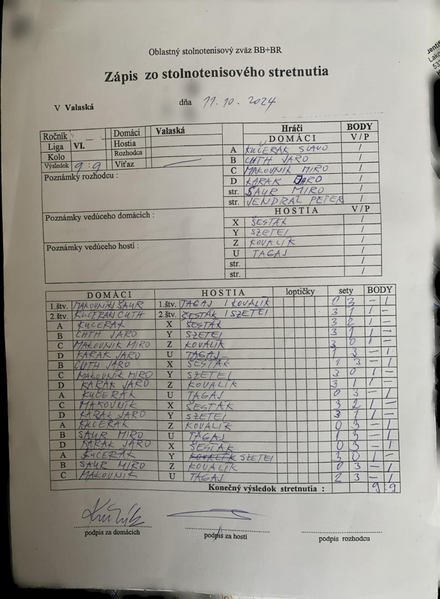 Oblastný stolnotenisový zväz BB+BR
Zápis zo stolnotenisového stretnutia
V Valaská dňa 11.10.2024
Ročník Domáci Valaská
Liga VI. Hostia
Kolo Rozhodca
Výsledok 9:9 Víťaz
Poznámky rozhodcu :
Poznámky vedúceho domácich :
Poznámky vedúceho hostí :
Hráči BODY
DOMÁCI V/P
A KUČERÁK SLAVO /
B CHTH JARO /
C MAKOVNÍK MIRO /
D KARAK JARO /
str. ŠAUR MIRO /
str. JENDRAL PETER /
HOSTIA V/P
X ŠESTÁK /
Y SZETEI /
Z KOVALIK /
U TAGAJ /
str. /
str. /
DOMÁCI HOSTIA loptičky sety BODY
1.štv. MAKOVNÍK ŠAUR 1.štv. TAGAJ / KOVALIK 0 3 - 1
2.štv. 2.štv. ŠESTÁK / SZETEI 3 1 1 -
A KUČERÁK X ŠESTÁK 3
B CHTH JARO Y SZETEI 3 1 1 -
C MAKOVNÍK MIRO Z KOVALIK 3
D KARAK JARO U TAGAJ 1 3 - 1
B CHTH JARO X ŠESTÁK 3 - 1
C MAKOVNÍK MIRO Y SZETEI 3 0 1 -
D KARAK JARO Z KOVALIK 3 1 1 -
A KUČERÁK U TAGAJ 0 3 - 1
C MAKOVNÍK X ŠESTÁK 3 1 -
D KARAK JARO Y SZETEI 3 1 1 -
A KUČERÁK Z KOVALIK 0 3 - 1
B ŠAUR MIRO U TAGAJ 3 - 1
D KARAK JARO X ŠESTÁK 3 - 1
A KUČERÁK Y SZETEI 3 0 1 -
B ŠAUR MIRO Z KOVALIK 0 3 - 1
C MAKOVNÍK U TAGAJ 2 3 - 1
Konečný výsledok stretnutia : 9:9
podpis za domácich podpis za hostí podpis rozhodcu